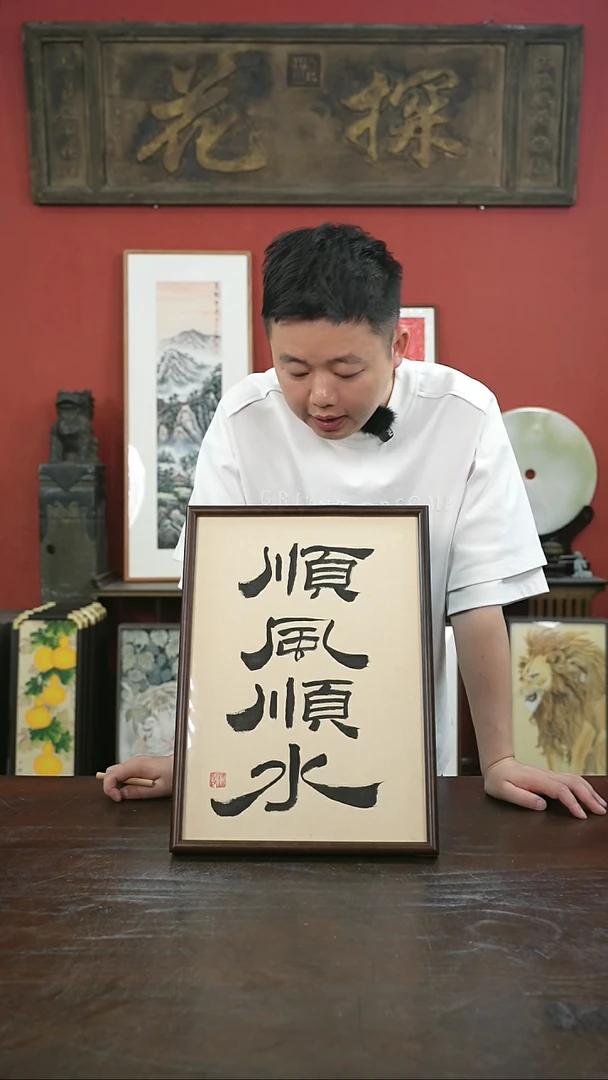 探花
順
風
順
水